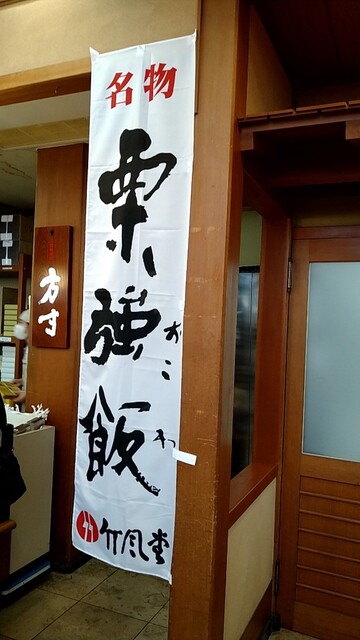 名物
栗強飯
おこわ
竹風堂
方寸